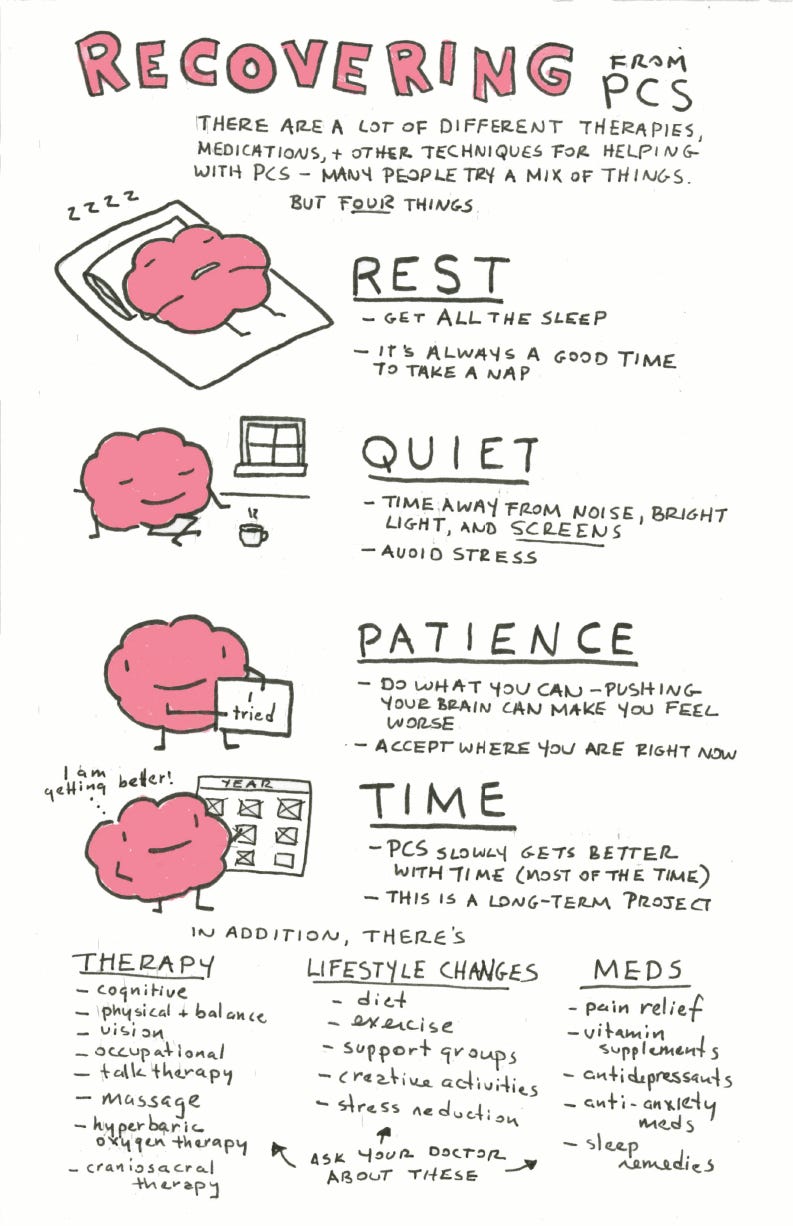 RECOVERING FROM PCS
THERE ARE A LOT OF DIFFERENT THERAPIES,
MEDICATIONS, + OTHER TECHNIQUES FOR HELPING
WITH PCS – MANY PEOPLE TRY A MIX OF THINGS.
BUT FOUR THINGS
z z z z
REST
– GET ALL THE SLEEP
– IT'S ALWAYS A GOOD TIME
TO TAKE A NAP
QUIET
– TIME AWAY FROM NOISE, BRIGHT
LIGHT, AND SCREENS
– AVOID STRESS
PATIENCE
– DO WHAT YOU CAN – PUSHING
YOUR BRAIN CAN MAKE YOU FEEL
WORSE
– ACCEPT WHERE YOU ARE RIGHT NOW
I
tried
TIME
– PCS SLOWLY GETS BETTER
WITH TIME (MOST OF THE TIME)
– THIS IS A LONG-TERM PROJECT
I am
getting better!
YEAR
IN ADDITION, THERE'S
THERAPY
– cognitive
– physical + balance
– vision
– occupational
– talk therapy
– massage
– hyperbaric
oxygen therapy
– craniosacral
therapy
LIFESTYLE CHANGES
– diet
– exercise
– support groups
– creative activities
– stress reduction
MEDS
– pain relief
– vitamin
supplements
– antidepressants
– anti-anxiety
meds
– sleep
remedies
ASK YOUR DOCTOR
ABOUT THESE